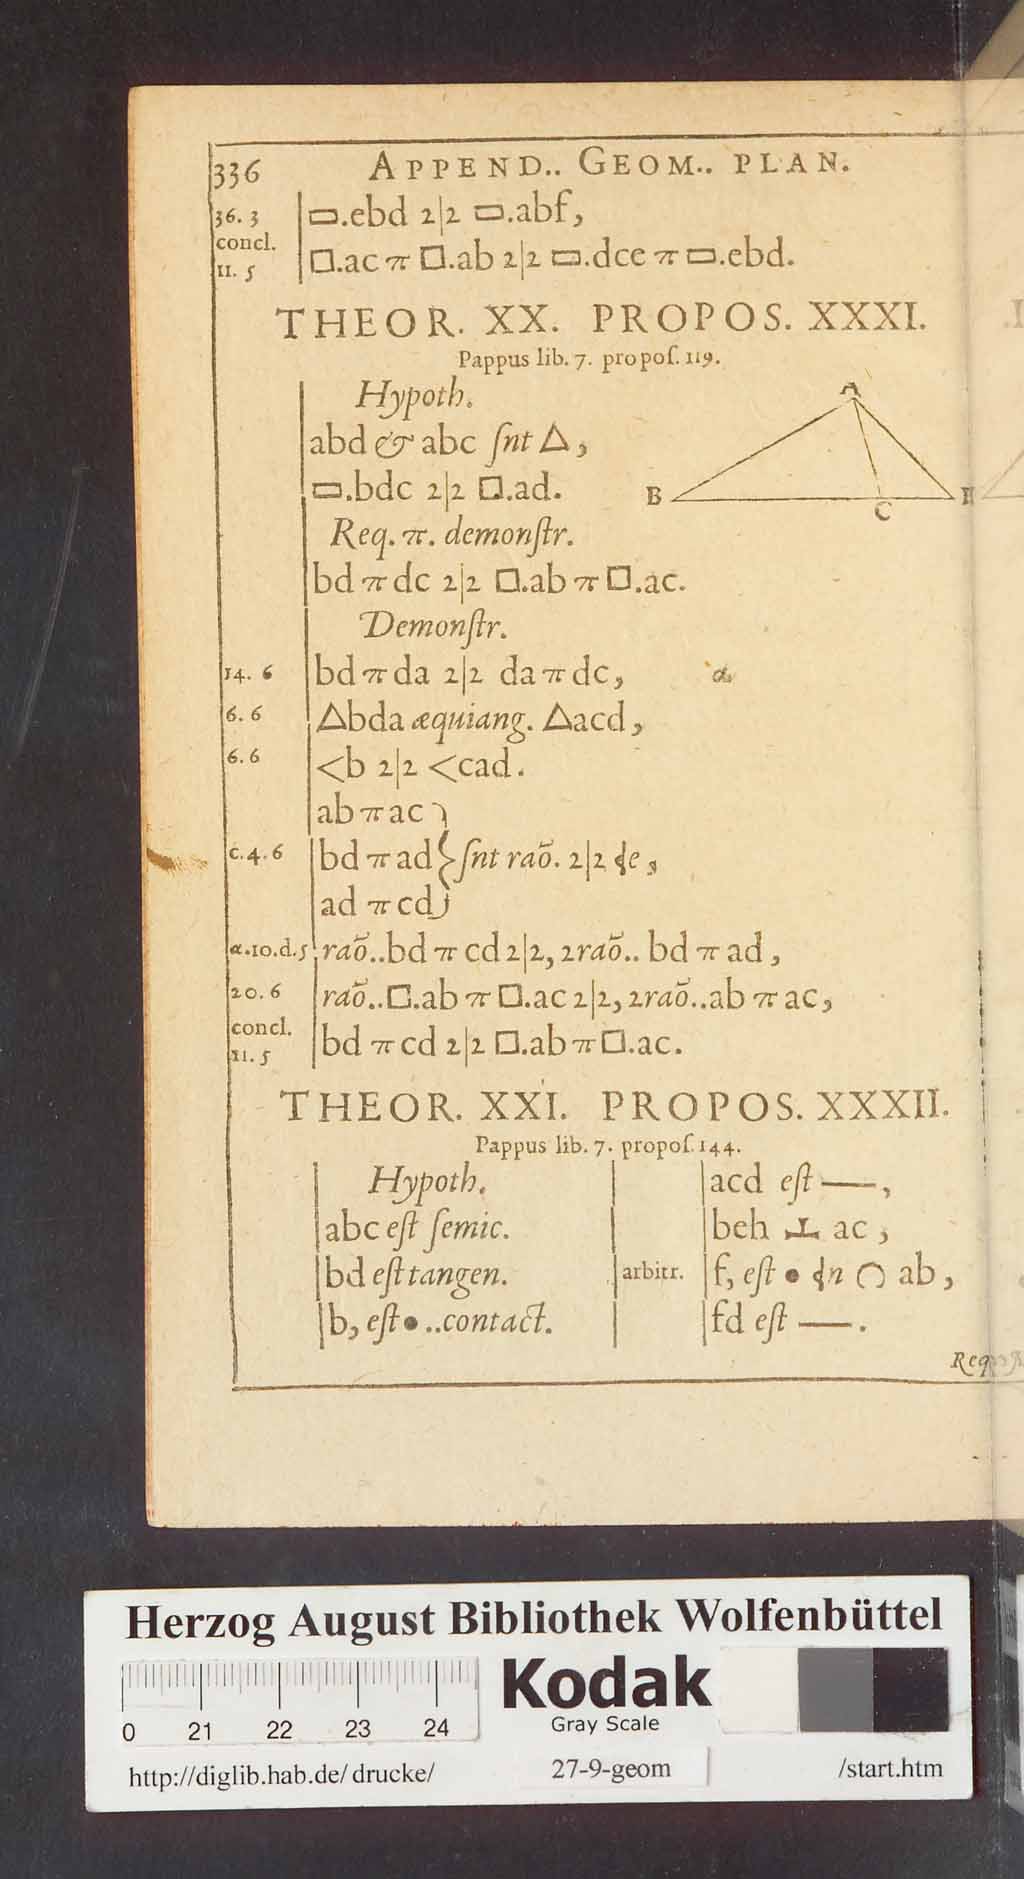 336 APPEND.. GEOM.. PLAN.
36. 3 ▭.ebd 2|2 ▭.abf,
concl.
11. 5 □.ac π □.ab 2|2 ▭.dce π ▭.ebd.
THEOR. XX. PROPOS. XXXI.
Pappus lib. 7. propoſ. 119.
Hypoth.
abd & abc ſnt △,
▭.bdc 2|2 □.ad.
A
B
C
Req. π. demonſtr.
bd π dc 2|2 □.ab π □.ac.
Demonſtr.
14. 6 bd π da 2|2 da π dc, α
6. 6 △bda æquiang. △acd,
6. 6 <b 2|2 <cad.
ab π ac
c. 4. 6 bd π ad } ſnt raõ. 2|2 ⧼e,
ad π cd
α.10.d.5 raõ..bd π cd 2|2, 2raõ.. bd π ad,
20. 6 raõ..□.ab π □.ac 2|2, 2raõ..ab π ac,
concl.
11. 5 bd π cd 2|2 □.ab π □.ac.
THEOR. XXI. PROPOS. XXXII.
Pappus lib. 7. propoſ. 144.
Hypoth. acd eſt —,
abc eſt ſemic. beh ⊥ ac,
bd eſt tangen. arbitr. f, eſt • ⧼n ◠ ab,
b, eſt • ..contact. fd eſt —.
Req.
Herzog August Bibliothek Wolfenbüttel
Kodak
Gray Scale
0 21 22 23 24
http://diglib.hab.de/drucke/ 27-9-geom /start.htm